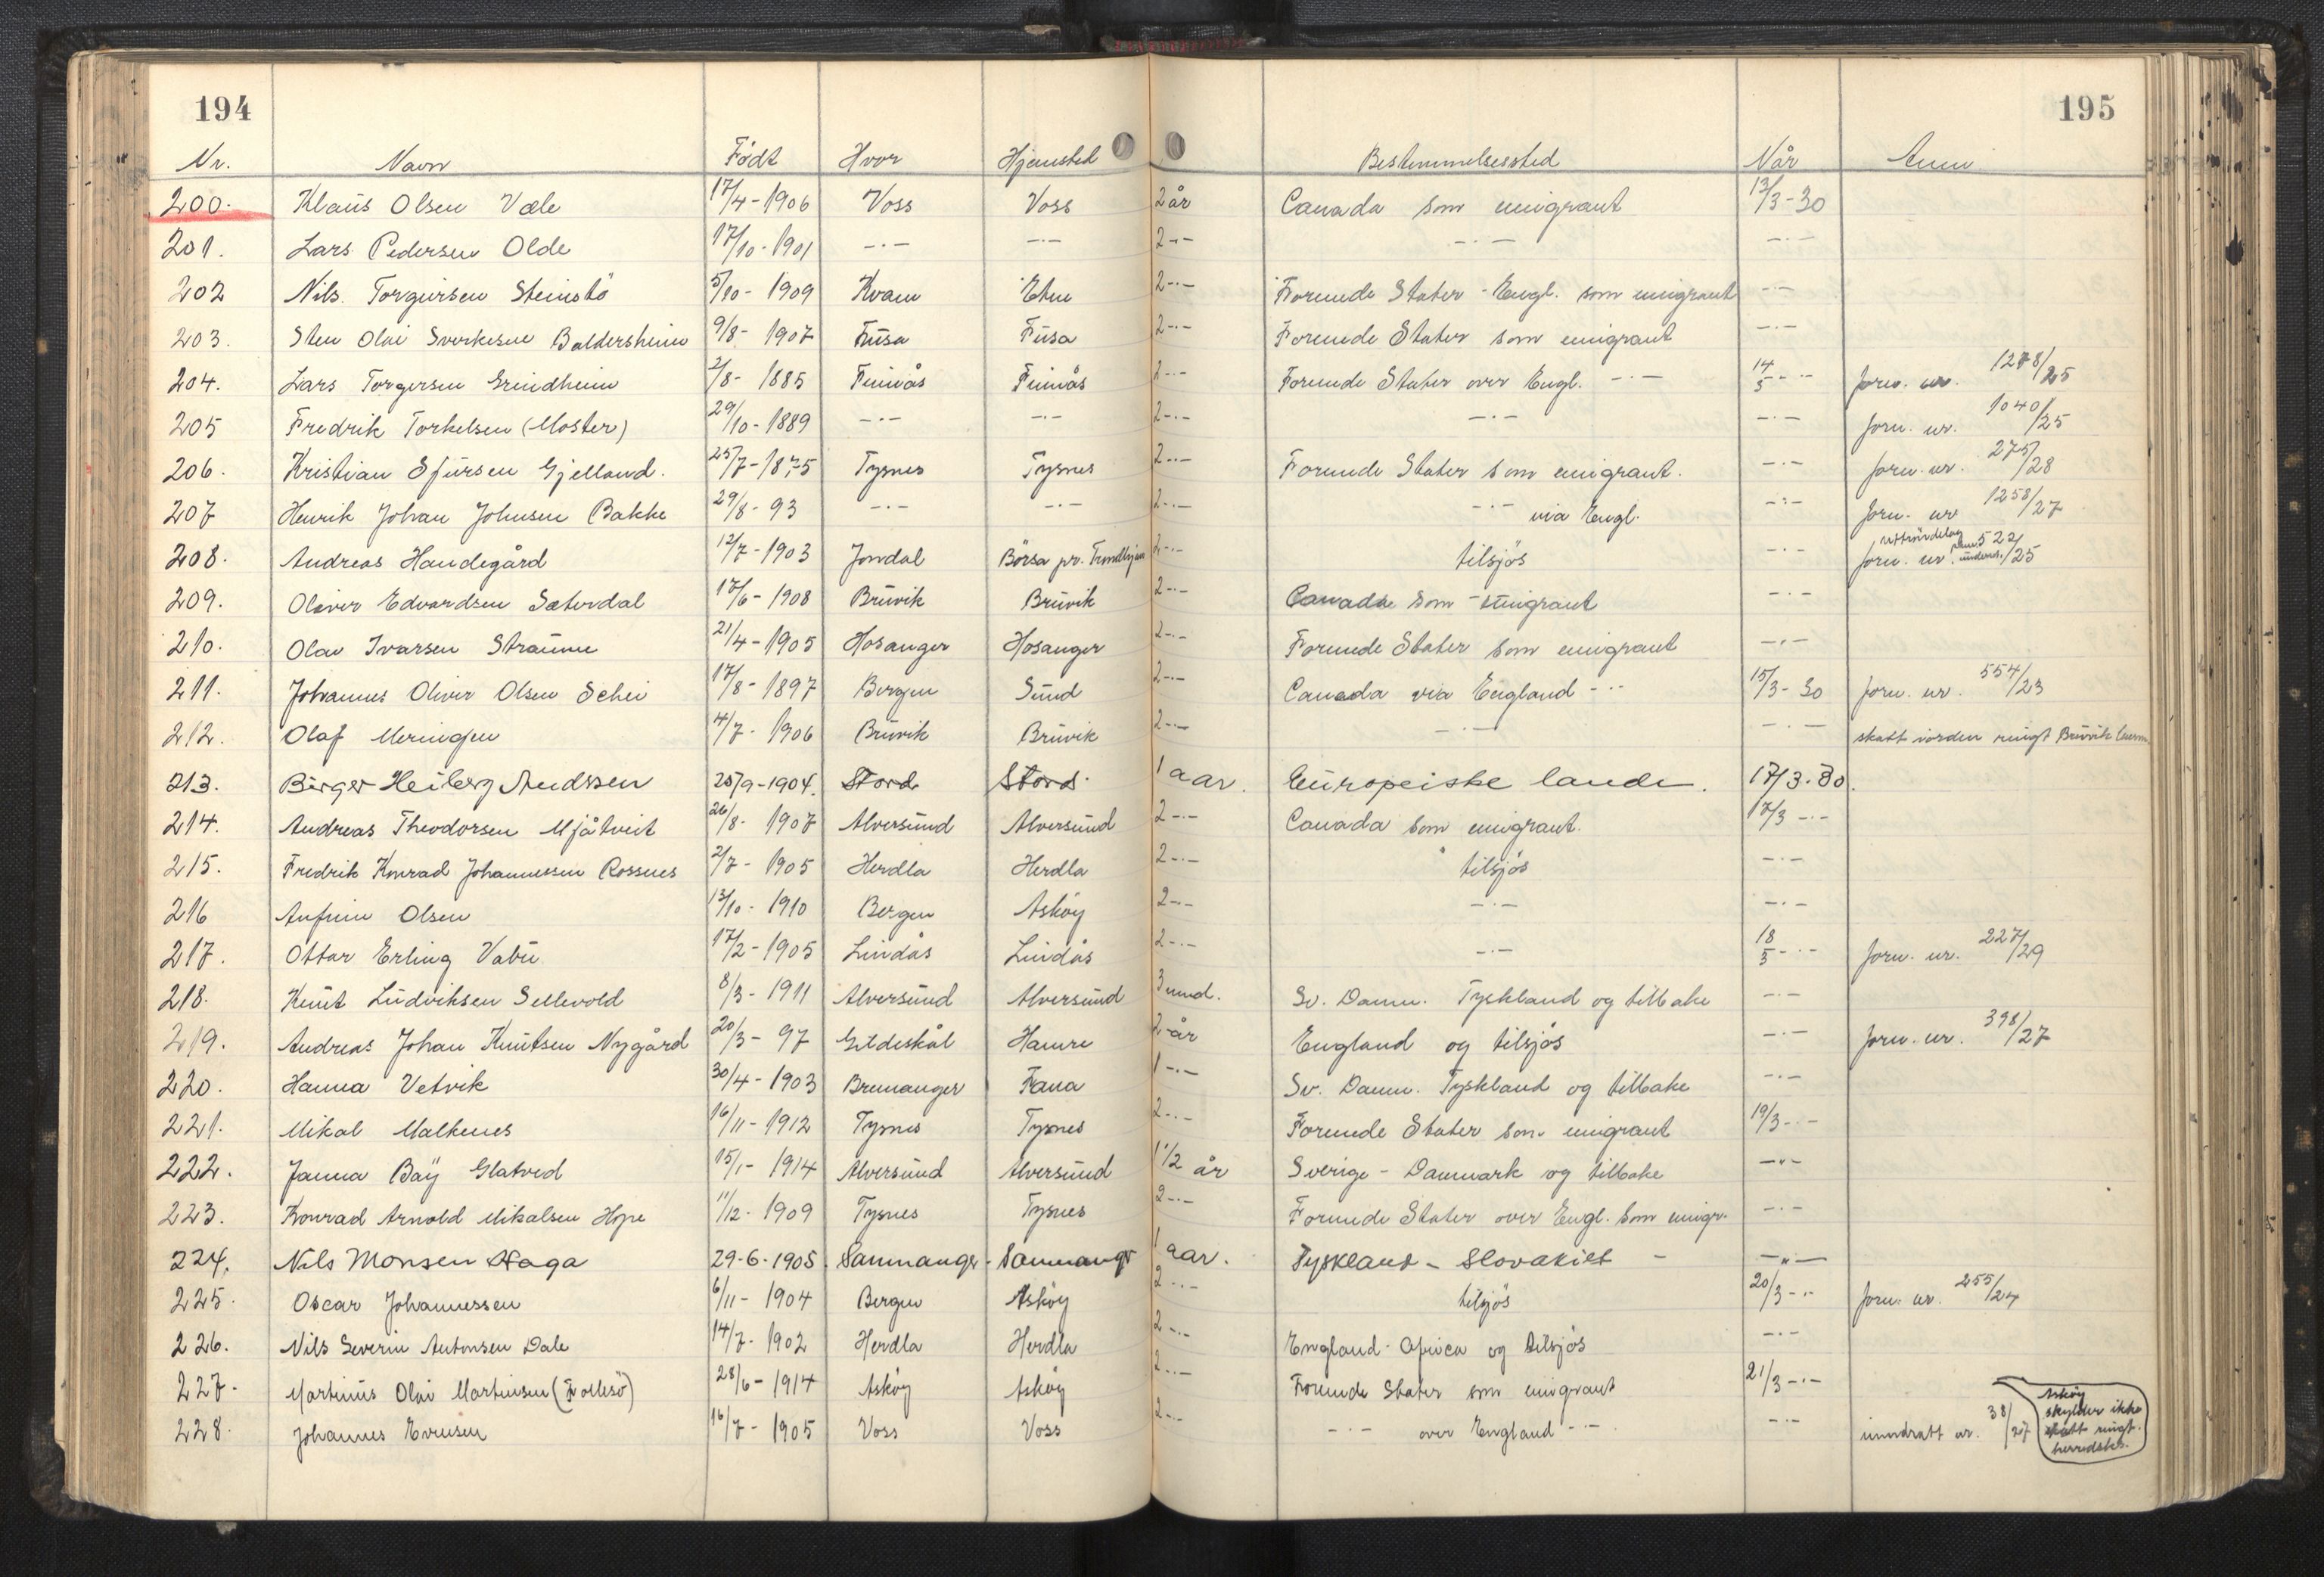 194
195
Nr. Navn Født Hvor Hjemsted Bestemmelsessted Når Anm
200. Klaus Olsen Væle 17/4-1906 Voss Voss 2 år Canada som emigrant 13/3-30
201. Lars Pedersen Olde 17/10-1901 -·- -·- 2 -- -·- -·-
202 Nils Torgeirsen Steinstö 5/10-1909 Kvam Etne 2 -·- Forenede Stater - Engl. som emigrant -·-
203. Sten Olai Sverkesen Baldersheim 9/8-1907 Fusa Fusa 2 -·- Forenede Stater som emigrant -·-
204. Lars Torgersen Grindheim 2/8-1885 Finnås Finnås 2 -·- Forenede Stater over Engl. -·- 14/3 -·- forn. nr. 1278/25
205 Fredrik Torkelsen (Moster) 29/10-1889 -·- -·- 2 -·- -·- -·- forn. nr. 1040/25
206. Kristian Sjursen Gjelland. 25/7-1875 Tysnes Tysnes 2 -·- Forenede Stater som emigrant. -·- forn. nr. 275/28
207 Henrik Johan Johnsen Bakke 29/8-93 -·- -·- 2 -·- -·- via Engl. -·- forn. nr 1258/27
208. Andreas Haudegård 12/7-1903 Jondal Börsa pr. Trondhjem 2 -·- tilsjös -·- forn. nr. 522/25
209. Oliver Edvardsen Sæterdal 17/6-1908 Bruvik Bruvik 2 -·- Canada som emigrant -·-
210. Olav Ivarsen Straume 21/4-1905 Hosanger Hosanger 2 -·- Forenede Stater som emigrant -·-
211. Johannes Oliver Olsen Schei 17/8-1897 Bergen Sund 2 -·- Canada via England -·- 15/3-30 forn. nr. 554/23
212. Olaf Meringen 4/7-1906 Bruvik Bruvik 2 -·- -·- -·- skatt i orden ringt Bruvik
213. Birger Heiberg Andssen 25/9-1904. Stord Stord. 1 aar. Europeiske lande. 17/3.30.
214. Andreas Theodorsen Mjåtveit 26/8-1907 Alversund Alversund 2 -·- Canada som emigrant. 17/3 -·-
215. Fredrik Konrad Johannessen Rossnes 2/7-1905 Herdla Herdla 2 -·- tilsjös -·-
216 Anfinn Olsen 13/10-1910 Bergen Asköy 2 -·- -·- -·-
217. Ottar Erling Vabö 17/2-1905 Lindås Lindås 2 -·- -·- 18/3 -·- forn. nr. 227/29
218. Knut Ludviksen Sellevold 8/3-1911 Alversund Alversund 3 mnd. Sv. Danm. Tyskland og tilbake -·-
219. Andreas Johan Knutsen Nygård 20/3-97 Gildeskål Hamre 2 år England og tilsjös -·- forn. nr. 398/27
220. Hanna Vetvik 30/4-1903 Bremanger Fana 1 -·- Sv. Danm. Tyskland og tilbake -·-
221. Mikal Malkenes 16/11-1912 Tysnes Tysnes 2 -·- Forenede Stater som emigrant 19/3 -·-
222. Janna Bay Glatved 15/1-1914 Alversund Alversund 1 1/2 år Sverige - Danmark og tilbake -"-
223. Konrad Arnold Mikalsen Hope 11/12-1909 Tysnes Tysnes 2 -·- Forenede Stater over Engl. som emigr. -·-
224. Nils Monsen Haga 29-6-1905. Samnanger Samnanger 1 aar. Tyskland - Slovakiet - -"-
225. Oscar Johannessen 6/11-1904 Bergen Asköy 2 -·- tilsjös 20/3 -·- forn. nr. 255/24
226. Nils Severin Antonsen Dale 14/7-1902 Herdla Herdla 2 -·- England - Africa og tilsjös -·-
227. Martinus Olai Martinsen (Follesö) 28/6-1914 Asköy Asköy 2 -·- Forenede Stater som emigrant 21/3 -·-
Asköy
skylder ikke
skatt ringt.
herredsks.
228. Johannes Evensen 16/7-1905 Voss Voss 2 -·- -·- over England -·- -·- inndratt nr. 38/27